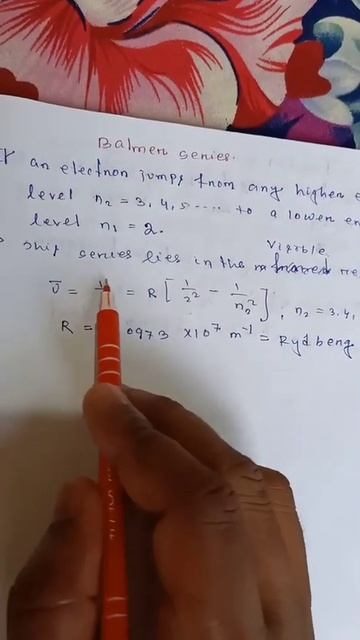 Balmer series.
If an electron jumps from any higher e
level n₂ = 3, 4, 5 ..... to a lower en
level n₁ = 2.
Visible
This series lies in the re
ν̄ = 1 = R [ 1/2² - 1/n₂² ], n₂ = 3, 4,
R = 0973 × 10⁷ m⁻¹ = Rydberg